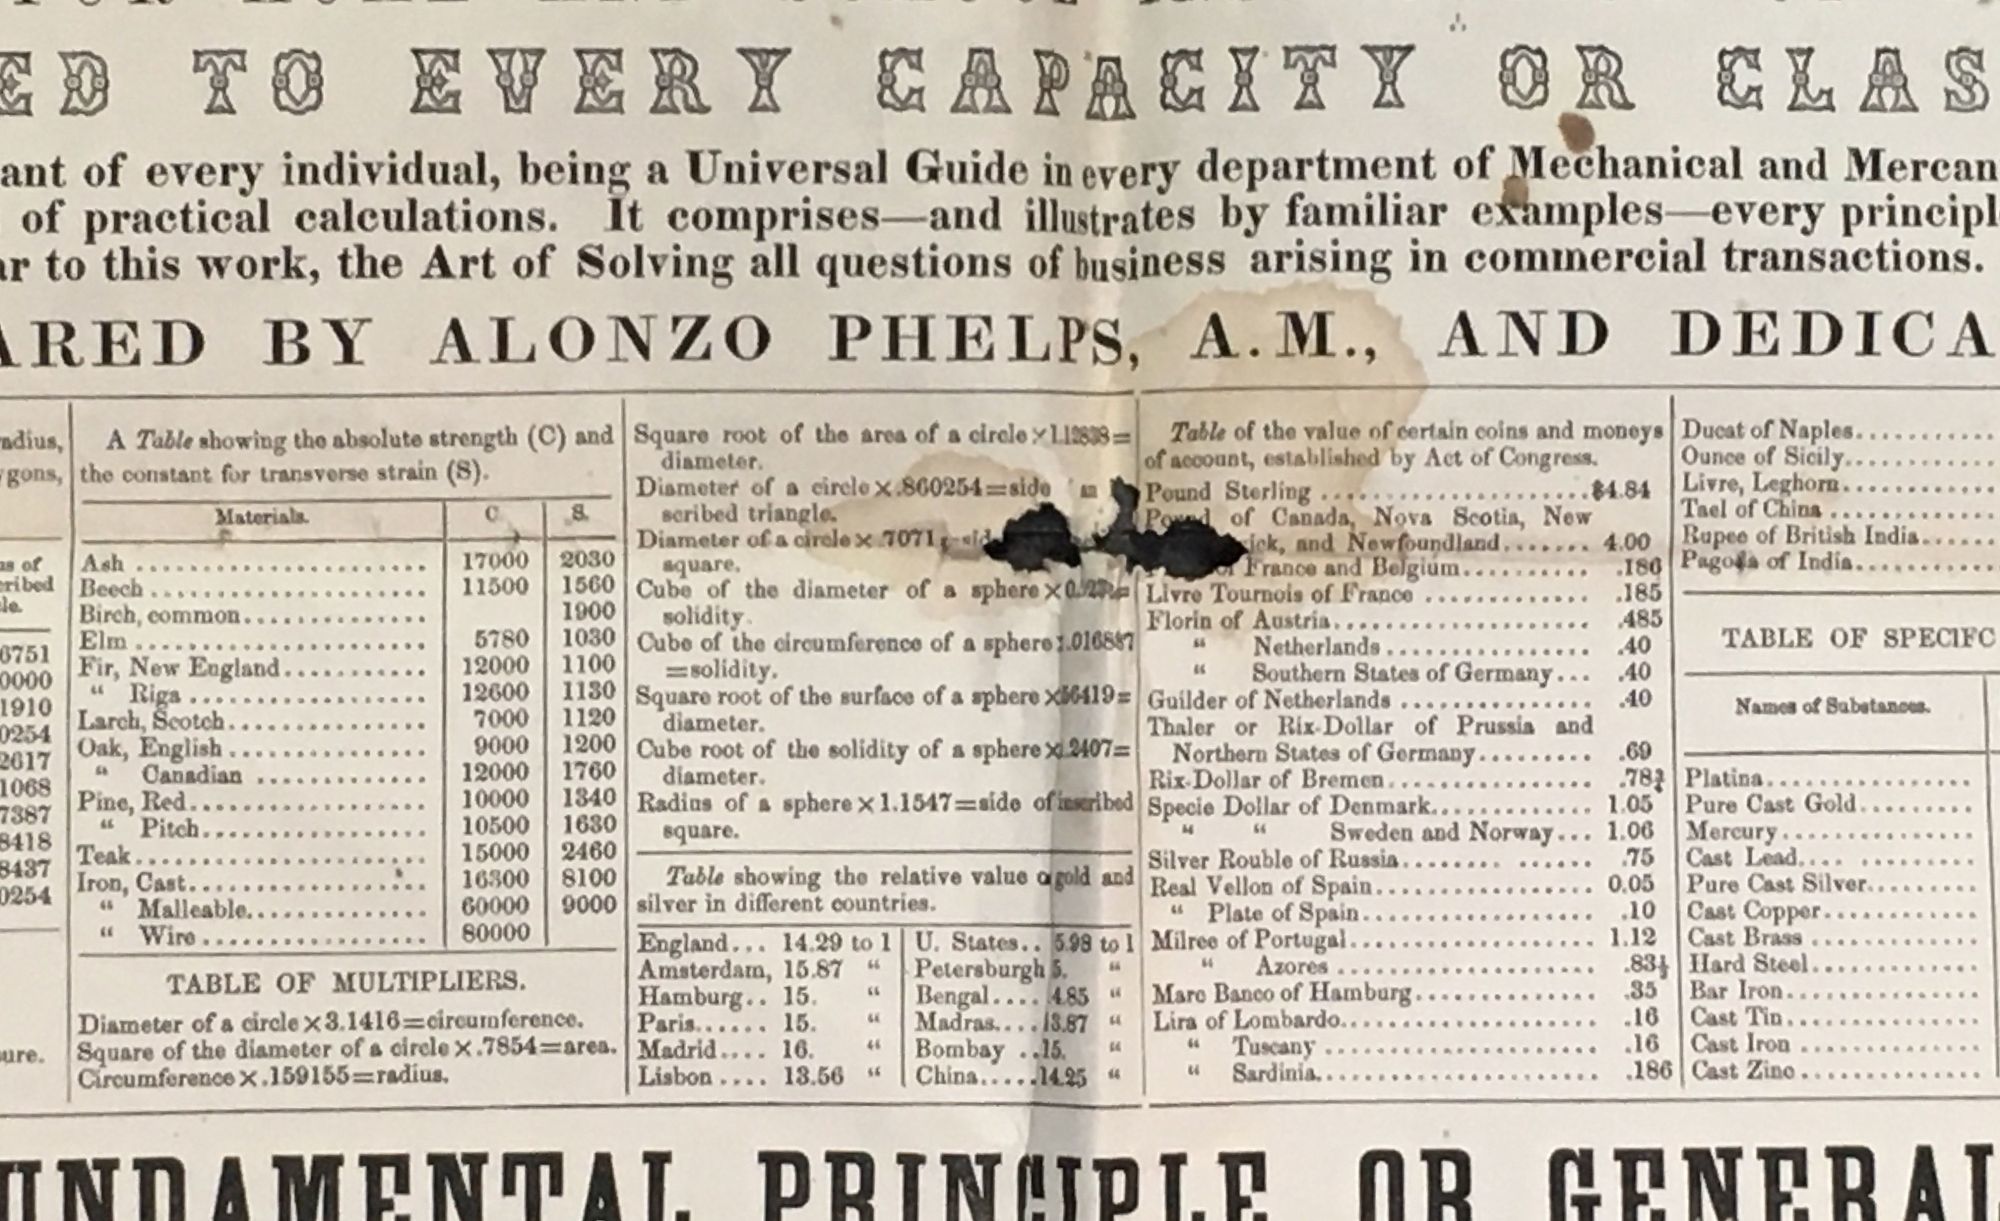 ED TO EVERY CAPACITY OR CLAS
ant of every individual, being a Universal Guide in every department of Mechanical and Mercan
of practical calculations. It comprises—and illustrates by familiar examples—every principl
ar to this work, the Art of Solving all questions of business arising in commercial transactions.
ARED BY ALONZO PHELPS, A.M., AND DEDICA
adius,
ygons,
as of
cribed
le.
6751
0000
1910
0254
2617
1068
7387
8418
8437
0254
ure.
A Table showing the absolute strength (C) and
the constant for transverse strain (S).
Materials. C. S.
Ash 17000 2030
Beech 11500 1560
Birch, common 1900
Elm 5780 1030
Fir, New England 12000 1100
“ Riga 12600 1130
Larch, Scotch 7000 1120
Oak, English 9000 1200
“ Canadian 12000 1760
Pine, Red 10000 1340
“ Pitch 10500 1630
Teak 15000 2460
Iron, Cast 16300 8100
“ Malleable 60000 9000
“ Wire 80000
TABLE OF MULTIPLIERS.
Diameter of a circle×3.1416=circumference.
Square of the diameter of a circle×.7854=area.
Circumference×.159155=radius.
Square root of the area of a circle×1.12838=
diameter.
Diameter of a circle×.860254=side
scribed triangle.
Diameter of a circle×.7071
square.
Cube of the diameter of a sphere×
solidity.
Cube of the circumference of a sphere .016887
=solidity.
Square root of the surface of a sphere×56419=
diameter.
Cube root of the solidity of a sphere× .2407=
diameter.
Radius of a sphere×1.1547=side of inscribed
square.
Table showing the relative value o gold and
silver in different countries.
England... 14.29 to 1 U. States.. 5.98 to 1
Amsterdam, 15.87 “ Petersburgh 5. “
Hamburg.. 15. “ Bengal.... 4.85 “
Paris...... 15. “ Madras.... 13.87 “
Madrid.... 16. “ Bombay ..15. “
Lisbon .... 13.56 “ China.....14.25 “
Table of the value of certain coins and moneys
of account, established by Act of Congress.
Pound Sterling $4.84
of Canada, Nova Scotia, New
ick, and Newfoundland 4.00
of France and Belgium .186
Livre Tournois of France .185
Florin of Austria .485
“ Netherlands .40
“ Southern States of Germany... .40
Guilder of Netherlands .40
Thaler or Rix-Dollar of Prussia and
Northern States of Germany .69
Rix-Dollar of Bremen .78¾
Specie Dollar of Denmark 1.05
“ “ Sweden and Norway... 1.06
Silver Rouble of Russia .75
Real Vellon of Spain 0.05
“ Plate of Spain .10
Milree of Portugal 1.12
“ Azores .83⅓
Marc Banco of Hamburg .35
Lira of Lombardo .16
“ Tuscany .16
“ Sardinia .186
Ducat of Naples
Ounce of Sicily
Livre, Leghorn
Tael of China
Rupee of British India
Pagoda of India
TABLE OF SPECIFC
Names of Substances.
Platina
Pure Cast Gold
Mercury
Cast Lead
Pure Cast Silver
Cast Copper
Cast Brass
Hard Steel
Bar Iron
Cast Tin
Cast Iron
Cast Zinc
UNDAMENTAL PRINCIPLE OR GENERAL